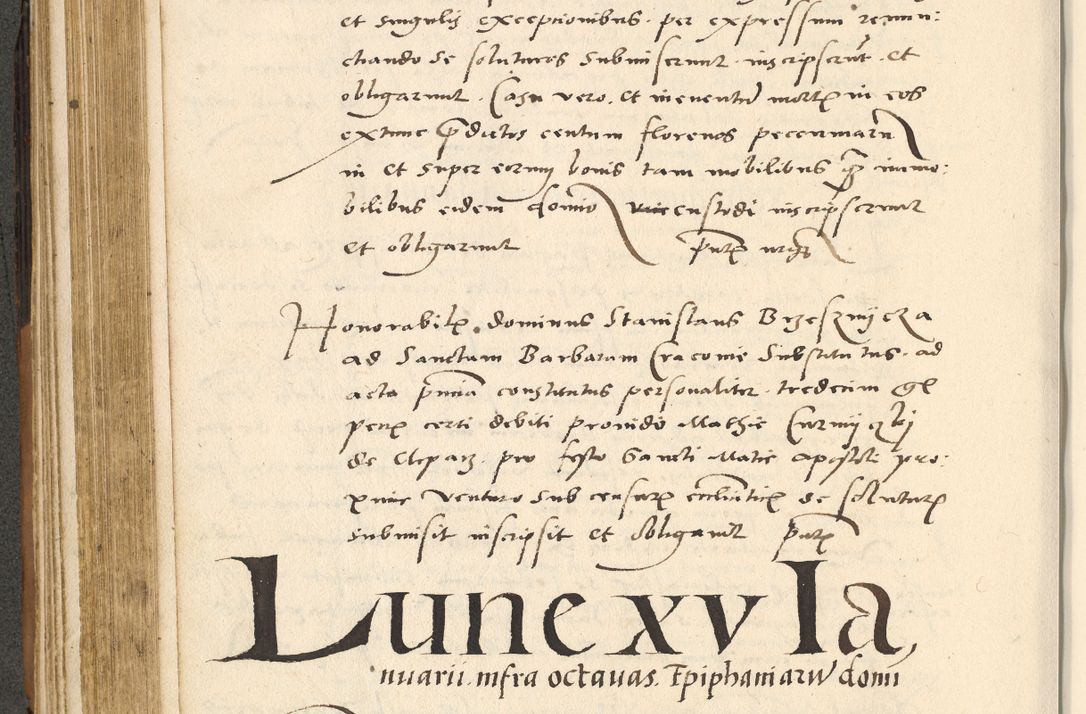 et singulis exceptionibus per expressum renun:
ctiando se soluturos submiserunt inscripserunt et
obligarunt. Casu vero et in eventum mortis in eos
extunc predictos centum florenos pecuniarum
in et super eorum bonis tam mobilibus quam immo:
bilibus eidem domino custodi inscripserunt
et obligarunt
Honorabilis dominus Stanislaus Brzesznyczka
ad Sanctam Barbaram Cracovie Substitutus ad
acta presencia constitutus personaliter tredecim
certi debiti provido Mathie
de Clepatz pro festo Sancti Matie Apostoli pro:
xime venturo sub censuris ecclesiasticis se soluturum
submisit inscripsit et obligavit
Lune xv Ia,
nuarii infra octavas Epiphaniarum domi